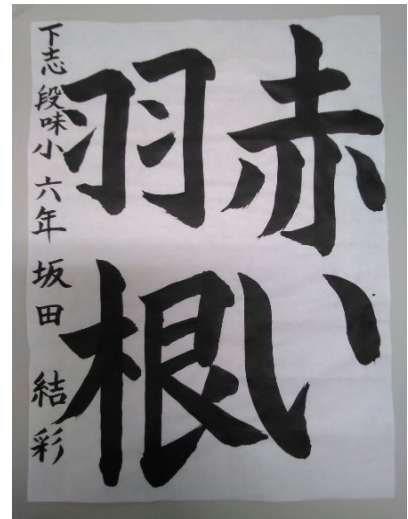 赤い
羽根
下志段味小 六年 坂田 結彩